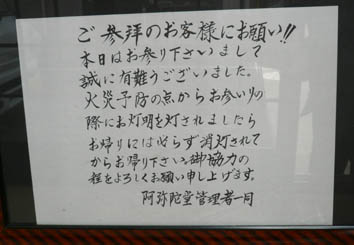 ご参拝のお客様にお願い!!
本日はお参り下さいまして
誠に有難うございました。
火災予防の点からお参いりの
際にお灯明を灯されましたら
お帰りには必らず消灯されて
からお帰り下さいる御協力の
程をよろしくお願い申し上げます。
阿弥陀堂管理者一同